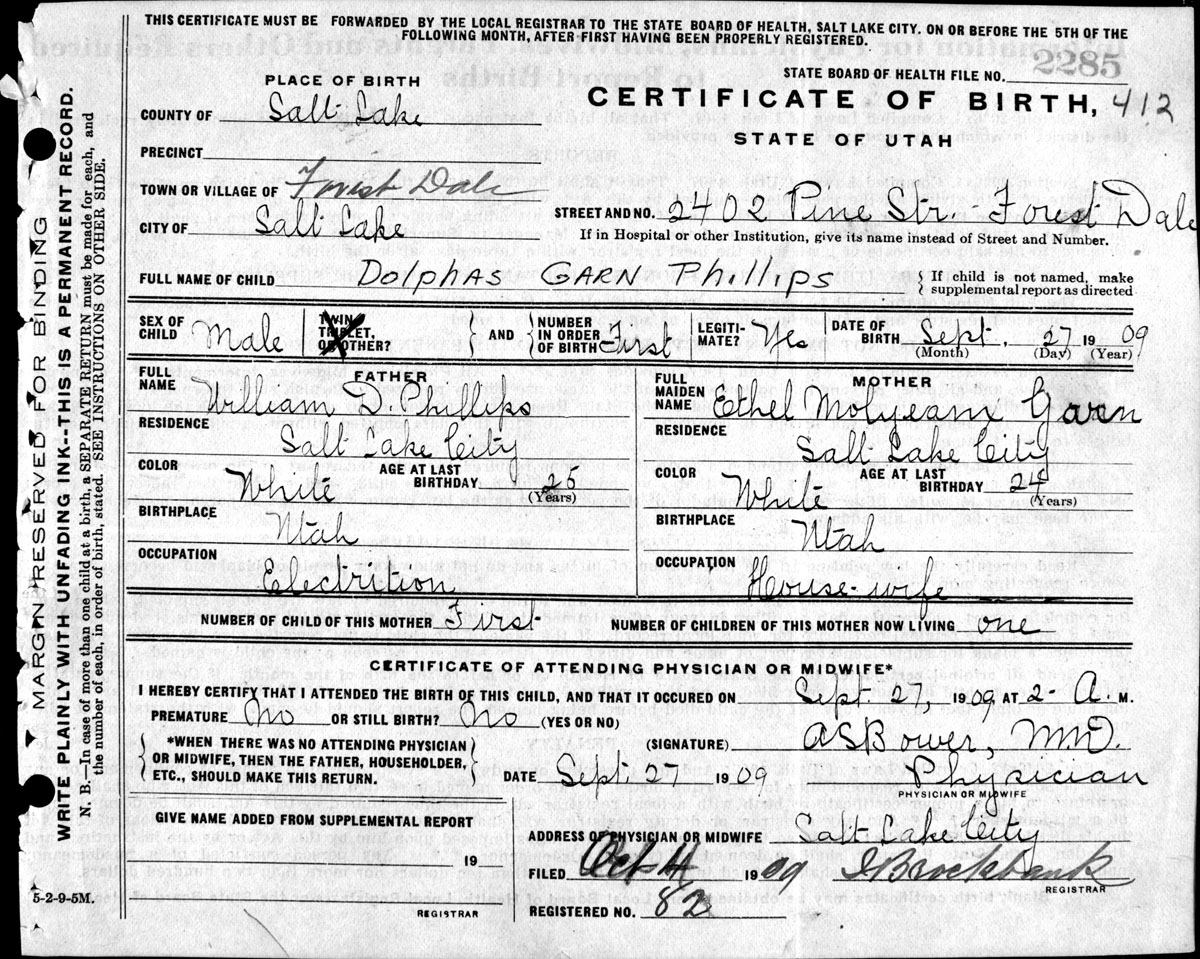 THIS CERTIFICATE MUST BE FORWARDED BY THE LOCAL REGISTRAR TO THE STATE BOARD OF HEALTH, SALT LAKE CITY. ON OR BEFORE THE 5TH OF THE
FOLLOWING MONTH, AFTER FIRST HAVING BEEN PROPERLY REGISTERED.
STATE BOARD OF HEALTH FILE NO. 2285
PLACE OF BIRTH
CERTIFICATE OF BIRTH, 412
STATE OF UTAH
COUNTY OF Salt Lake
PRECINCT
TOWN OR VILLAGE OF Forest Dale
STREET AND NO. 2402 Pine Str. Forest Dale
CITY OF Salt Lake
If in Hospital or other Institution, give its name instead of Street and Number.
FULL NAME OF CHILD Dolphas Garn Phillips
If child is not named, make
supplemental report as directed
SEX OF CHILD Male
TWIN, TRIPLET, OR OTHER?
AND NUMBER IN ORDER OF BIRTH First
LEGITIMATE? Yes
DATE OF BIRTH Sept. 27 1909
(Month) (Day) (Year)
FATHER
FULL NAME William D. Phillips
RESIDENCE
Salt Lake City
COLOR White
AGE AT LAST BIRTHDAY 26
(Years)
BIRTHPLACE
Utah
OCCUPATION
Electrition
MOTHER
FULL MAIDEN NAME Ethel Garn
RESIDENCE
Salt Lake City
COLOR White
AGE AT LAST BIRTHDAY
(Years)
BIRTHPLACE
Utah
OCCUPATION
House-wife
NUMBER OF CHILD OF THIS MOTHER First
NUMBER OF CHILDREN OF THIS MOTHER NOW LIVING one
CERTIFICATE OF ATTENDING PHYSICIAN OR MIDWIFE*
I HEREBY CERTIFY THAT I ATTENDED THE BIRTH OF THIS CHILD, AND THAT IT OCCURED ON Sept. 27, 1909 AT 2- A. M.
PREMATURE No OR STILL BIRTH? No (YES OR NO)
*WHEN THERE WAS NO ATTENDING PHYSICIAN
OR MIDWIFE, THEN THE FATHER, HOUSEHOLDER,
ETC., SHOULD MAKE THIS RETURN.
(SIGNATURE) ASBower, M.D.
DATE Sept. 27 1909 Physician
PHYSICIAN OR MIDWIFE
GIVE NAME ADDED FROM SUPPLEMENTAL REPORT
19
REGISTRAR
ADDRESS OF PHYSICIAN OR MIDWIFE Salt Lake City
FILED Oct 1909 Brockbank
REGISTRAR
REGISTERED NO. 82
5-2-9-5M.
MARGIN RESERVED FOR BINDING
WRITE PLAINLY WITH UNFADING INK--THIS IS A PERMANENT RECORD.
N. B.—In case of more than one child at a birth, a SEPARATE RETURN must be made for each, and
the number of each, in order of birth, stated. SEE INSTRUCTIONS ON OTHER SIDE.